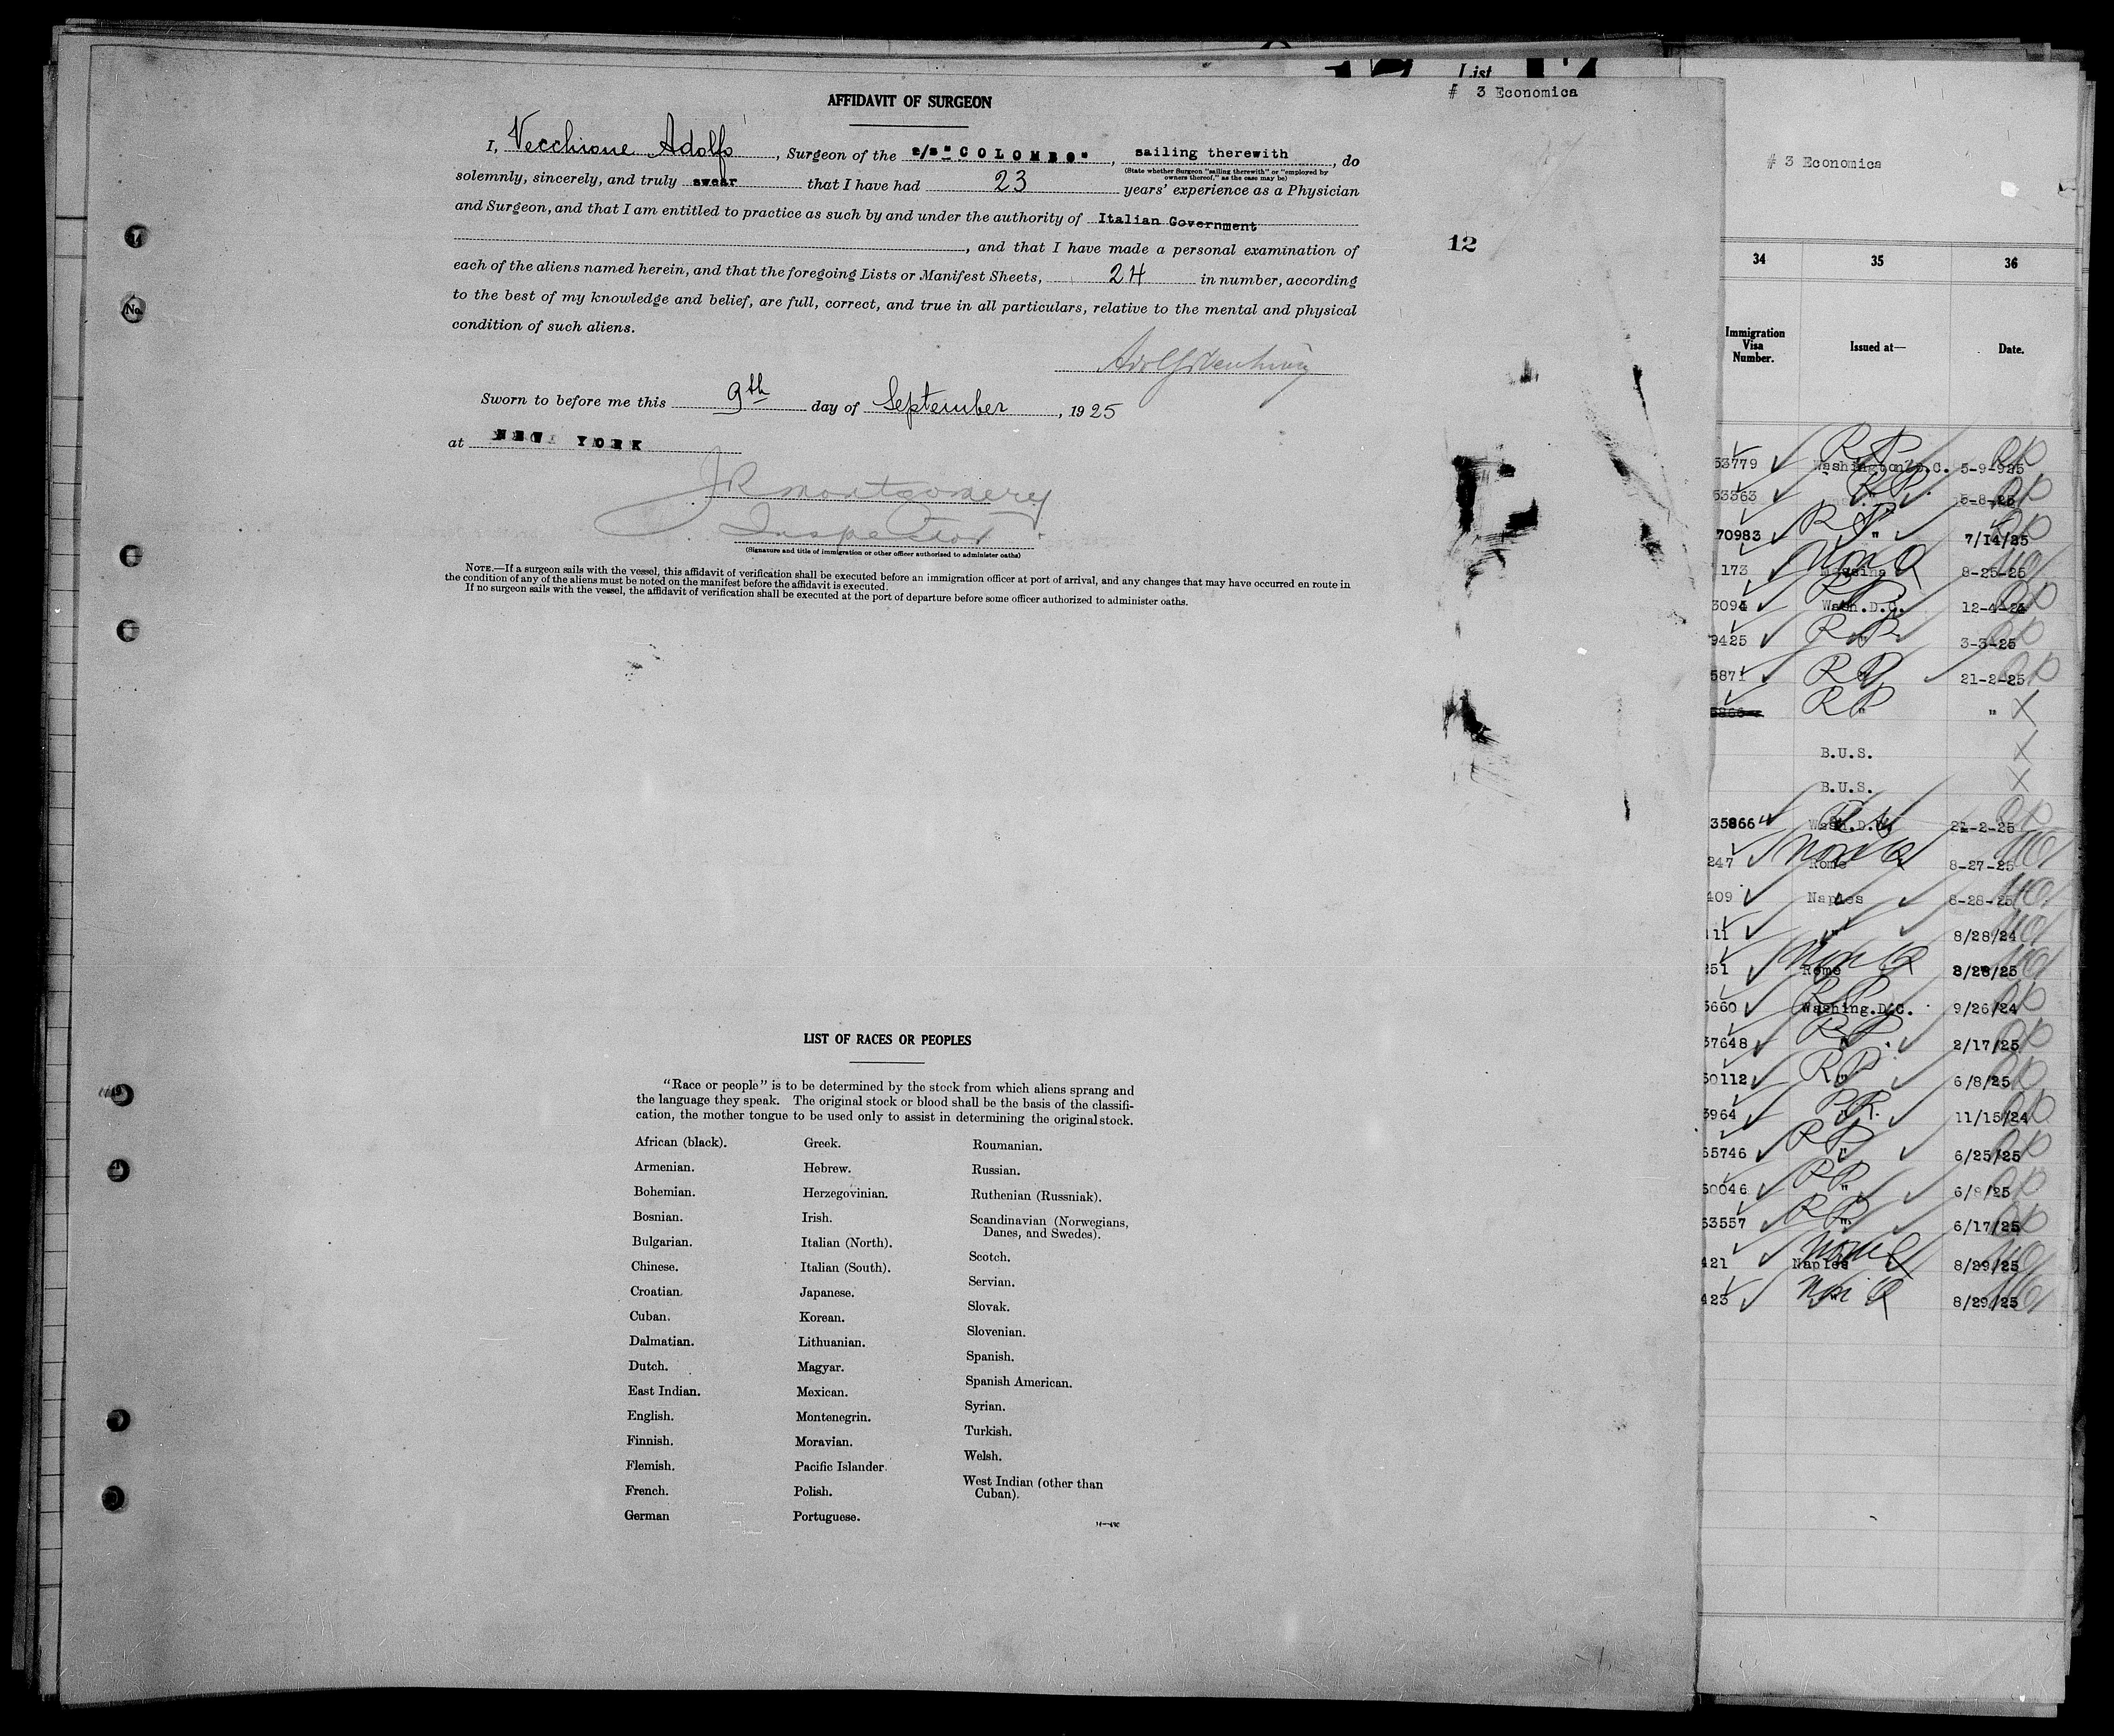 AFFIDAVIT OF SURGEON
I, Vecchione Adolfo, Surgeon of the s/s "COLOMBO", sailing therewith, do
(State whether Surgeon "sailing therewith" or "employed by
owners thereof," as the case may be)
solemnly, sincerely, and truly swear that I have had 23 years' experience as a Physician
and Surgeon, and that I am entitled to practice as such by and under the authority of Italian Government
, and that I have made a personal examination of
each of the aliens named herein, and that the foregoing Lists or Manifest Sheets, 24 in number, according
to the best of my knowledge and belief, are full, correct, and true in all particulars, relative to the mental and physical
condition of such aliens.
Sworn to before me this 9th day of September, 1925
at NEW YORK
J R Montgomery
Inspector
(Signature and title of immigration or other officer authorized to administer oaths)
NOTE.—If a surgeon sails with the vessel, this affidavit of verification shall be executed before an immigration officer at port of arrival, and any changes that may have occurred en route in
the condition of any of the aliens must be noted on the manifest before the affidavit is executed.
If no surgeon sails with the vessel, the affidavit of verification shall be executed at the port of departure before some officer authorized to administer oaths.
LIST OF RACES OR PEOPLES
"Race or people" is to be determined by the stock from which aliens sprang and
the language they speak. The original stock or blood shall be the basis of the classifi-
cation, the mother tongue to be used only to assist in determining the original stock.
African (black).
Armenian.
Bohemian.
Bosnian.
Bulgarian.
Chinese.
Croatian.
Cuban.
Dalmatian.
Dutch.
East Indian.
English.
Finnish.
Flemish.
French.
German
Greek.
Hebrew.
Herzegovinian.
Irish.
Italian (North).
Italian (South).
Japanese.
Korean.
Lithuanian.
Magyar.
Mexican.
Montenegrin.
Moravian.
Pacific Islander.
Polish.
Portuguese.
Roumanian.
Russian.
Ruthenian (Russniak).
Scandinavian (Norwegians,
Danes, and Swedes).
Scotch.
Servian.
Slovak.
Slovenian.
Spanish.
Spanish American.
Syrian.
Turkish.
Welsh.
West Indian (other than
Cuban).
List
# 3 Economica
12
No.
# 3 Economica
34 35 36
Immigration
Visa
Number.
Issued at—
Date.
53779 RP Washington D.C. 5-9-925 RP
53363 RP 5-8-25 RP
70983 RP " 7/14/25 RP
173 Non Q Messina 8-25-25 NQ
3094 RP Wash.D.C. 12-4-24 RP
9425 RP " 3-3-25 RP
5871 RP " 21-2-25 RP
5866 RP " " X
B.U.S. X
B.U.S. X
35866 Wash.D.C. 21-2-25 RP
247 Non Q Rome 8-27-25 NQ
409 Naples 8-28-25 NQ
11 " 8/28/24 NQ
251 Non Q Rome 8/28/25 NQ
5660 RP Washing.D.C. 9/26/24 RP
57648 RP " 2/17/25 RP
60112 RP " 6/8/25 RP
3964 PR " 11/15/24 RP
65746 RP " 6/25/25 RP
60046 RP " 6/8/25 RP
63557 RP " 6/17/25 RP
421 Non Q Naples 8/29/25 NQ
423 Non Q " 8/29/25 NQ